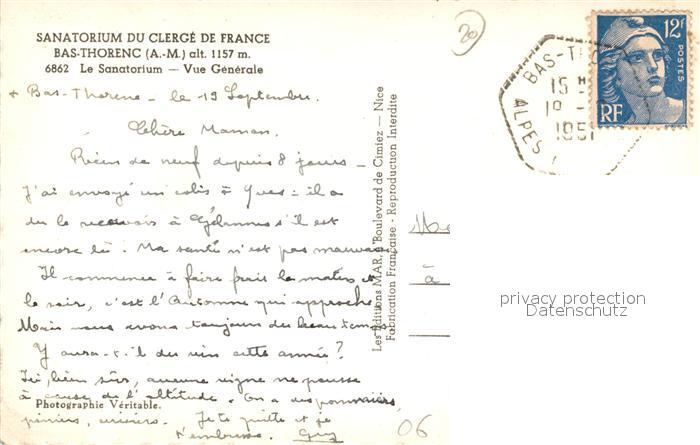 SANATORIUM DU CLERGÉ DE FRANCE
BAS-THORENC (A.-M.) alt. 1157 m.
6862 Le Sanatorium — Vue Générale
Bas-Thorenc - le 19 Septembre.
Chère Maman.
Rien de neuf depuis 8 jours —
J'ai envoyé un colis à Yves : il a
du le recevoir à s'il est
encore là. Ma santé n'est pas mauvaise
Il commence à faire frais le matin et
le soir, c'est l'Automne qui approche
Mais nous avons toujours du beau temps
Y aura-t-il du vin cette année ?
Ici, bien sûr, aucune vigne ne pousse
à cause de l'altitude. On a des pommiers,
Photographie Véritable.
Je te quitte et je
t'embrasse. Guy
Les Editions MAR, Boulevard de Cimiez — Nice
Fabrication Française - Reproduction Interdite
20
M
à
06
BAS-THO
15 H
19 -
1951
ALPES
12F
POSTES
RF
privacy protection
Datenschutz